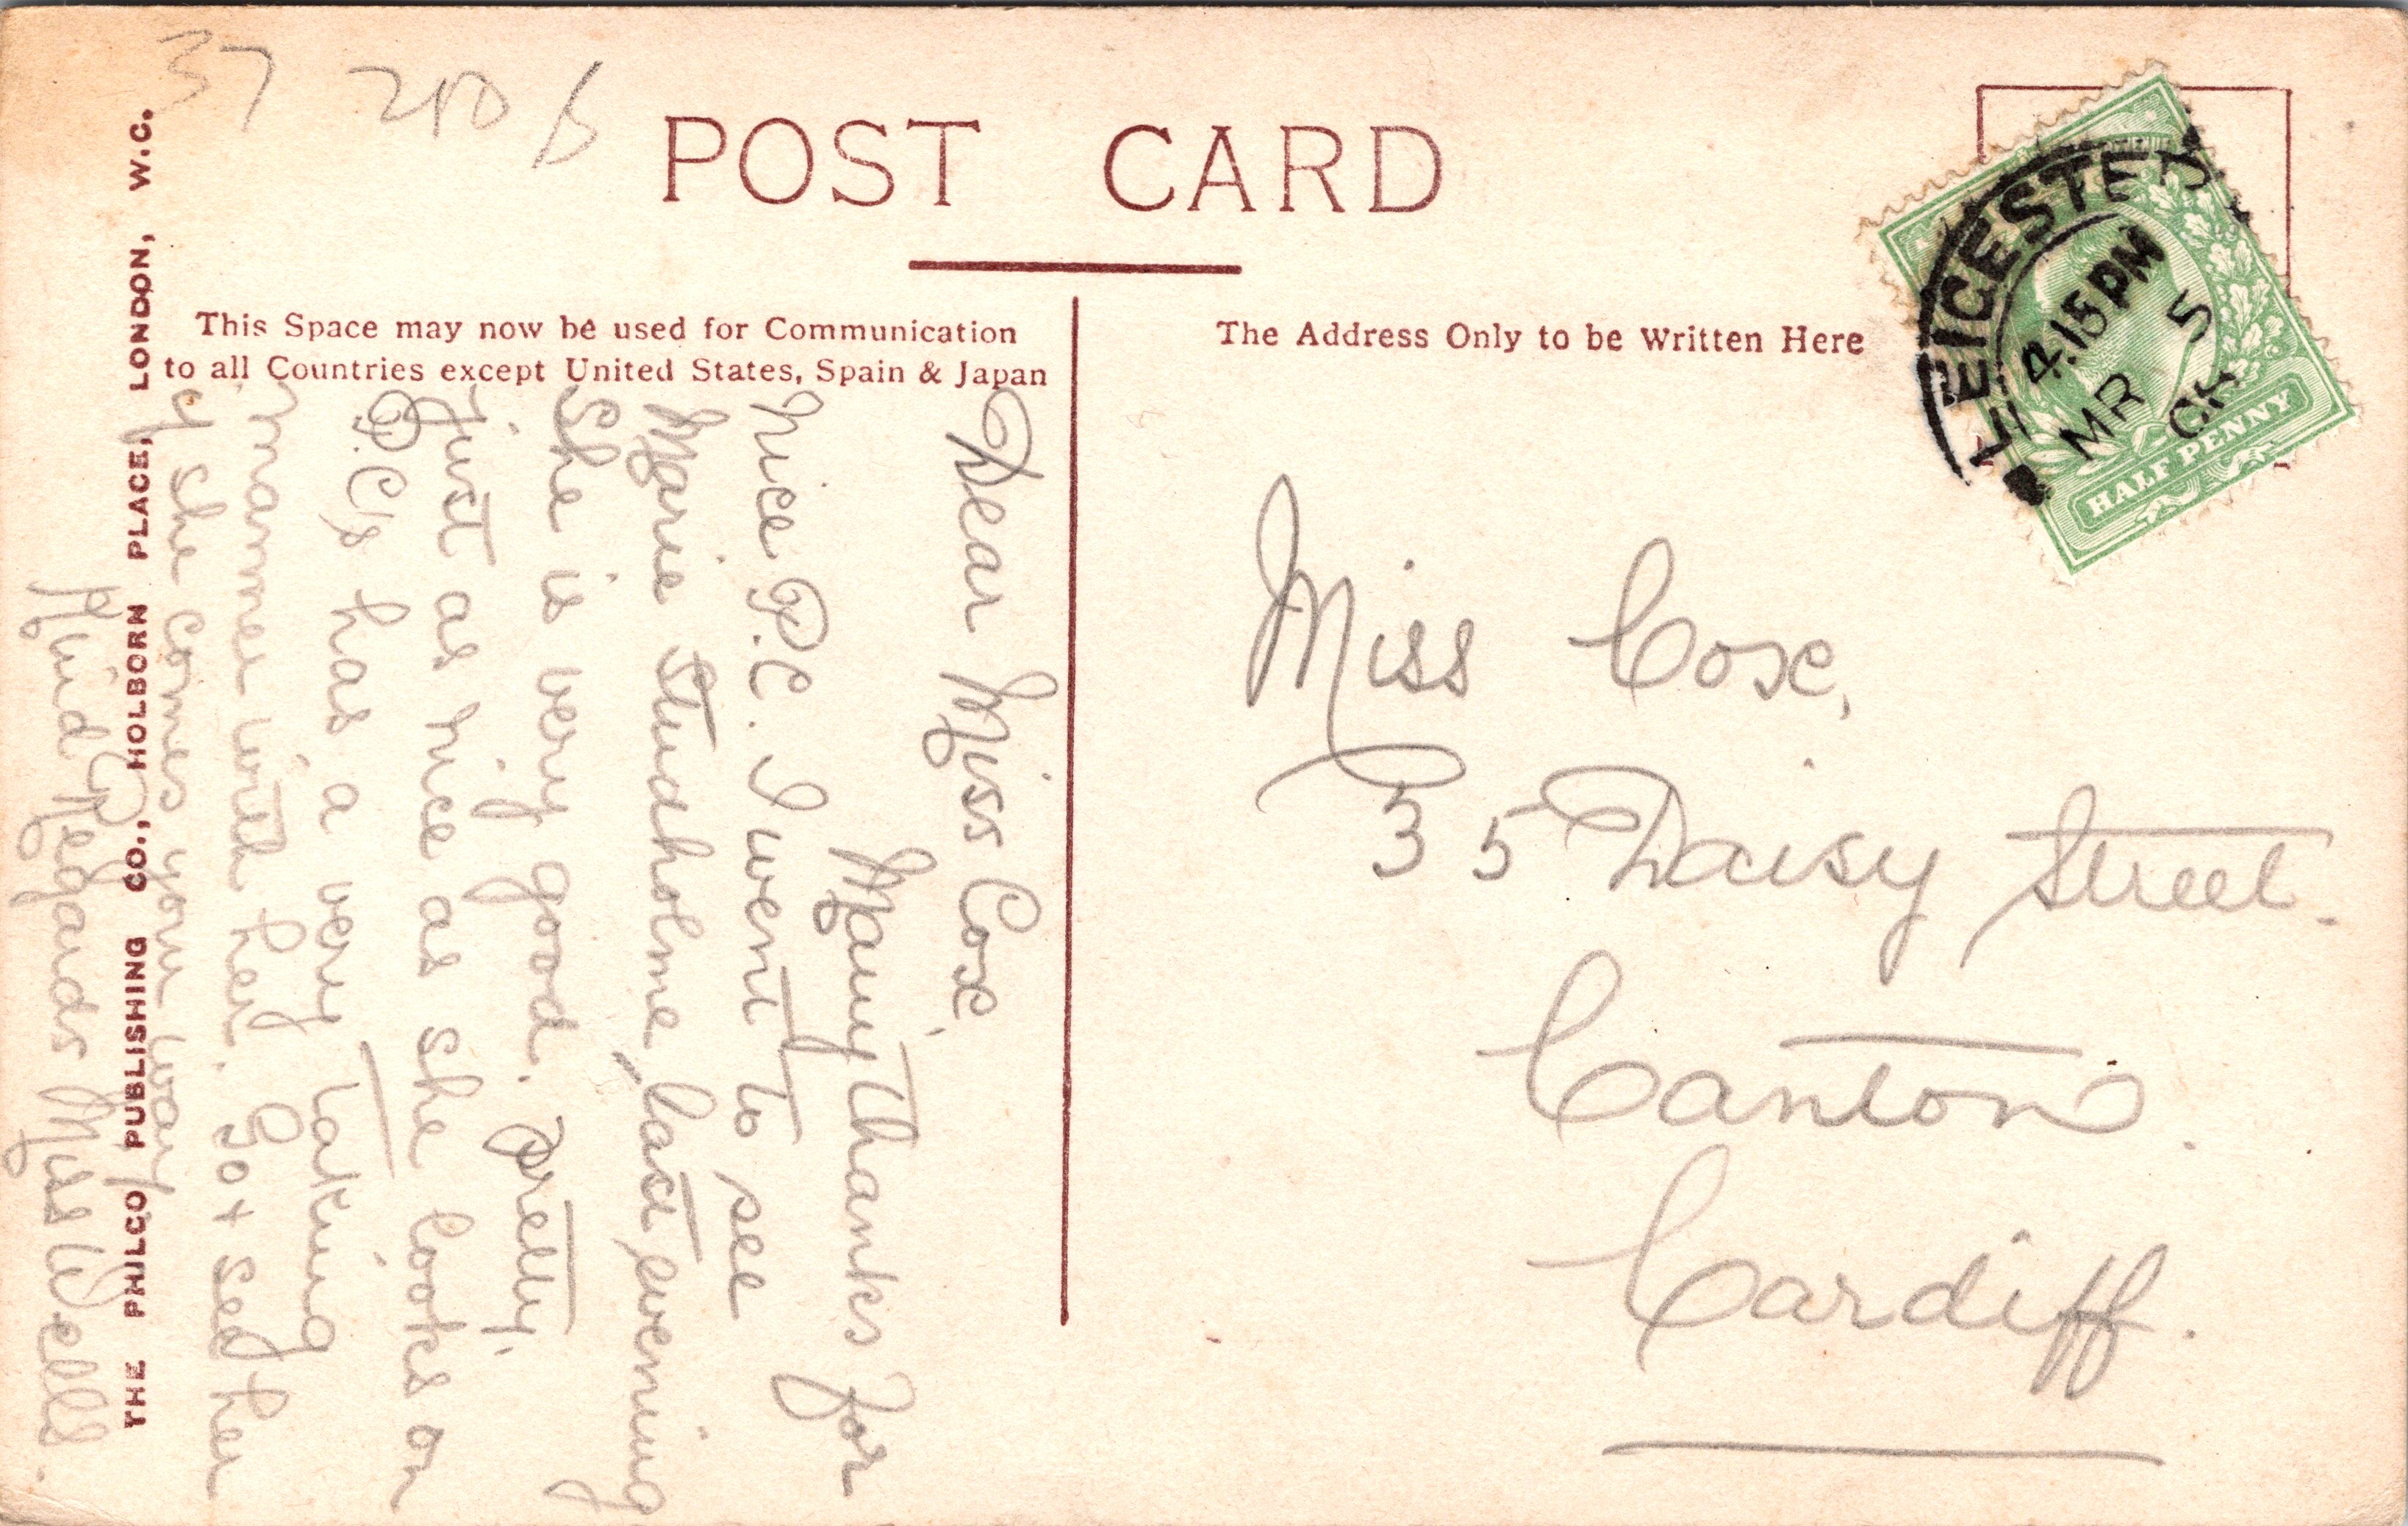 37 210 6
POST CARD
This Space may now be used for Communication
to all Countries except United States, Spain & Japan
The Address Only to be Written Here
LEICESTER
4.15 PM
MR 5
08
HALF PENNY
Miss Cox,
35 Daisy Street.
Canton.
Cardiff.
Dear Miss Cox,
Many thanks for
nice P.C. I went to see
Marie Studholme, last evening
She is very good. Pretty,
just as nice as she looks on
P.C's has a very taking
manner with her. Go & see her
if she comes your way
Kind Regards Miss Wells.
THE PHILCO PUBLISHING CO., HOLBORN PLACE, LONDON, W.C.